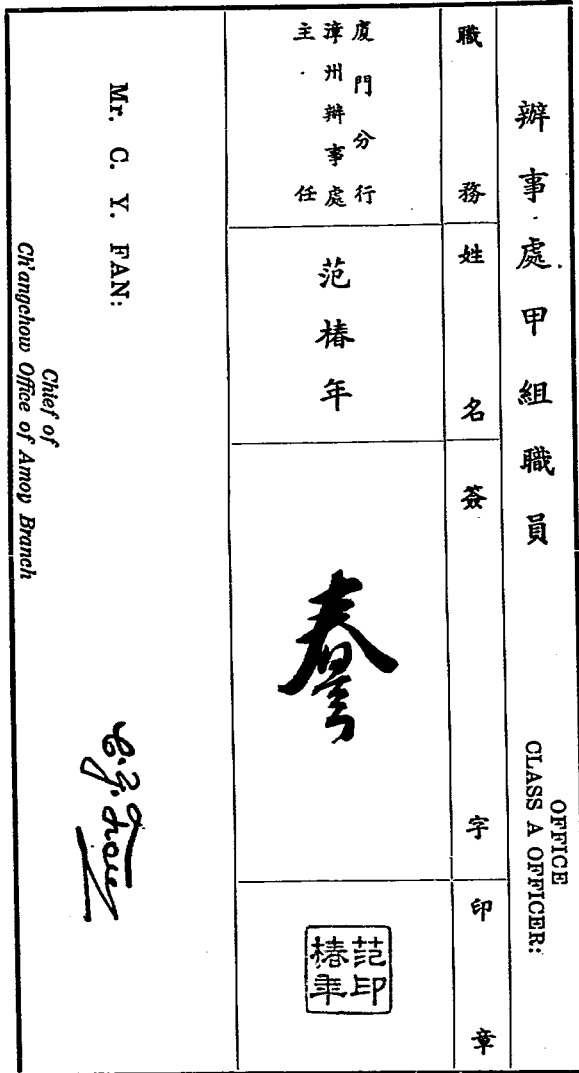 辦事處甲組職員
OFFICE
CLASS A OFFICER:
職務
姓名
簽字
印章
廈門分行
漳州辦事處
主任
范椿年
范印
椿年
Mr. C. Y. FAN:
Chief of
Ch'angchow Office of Amoy Branch
C. Y. Fan